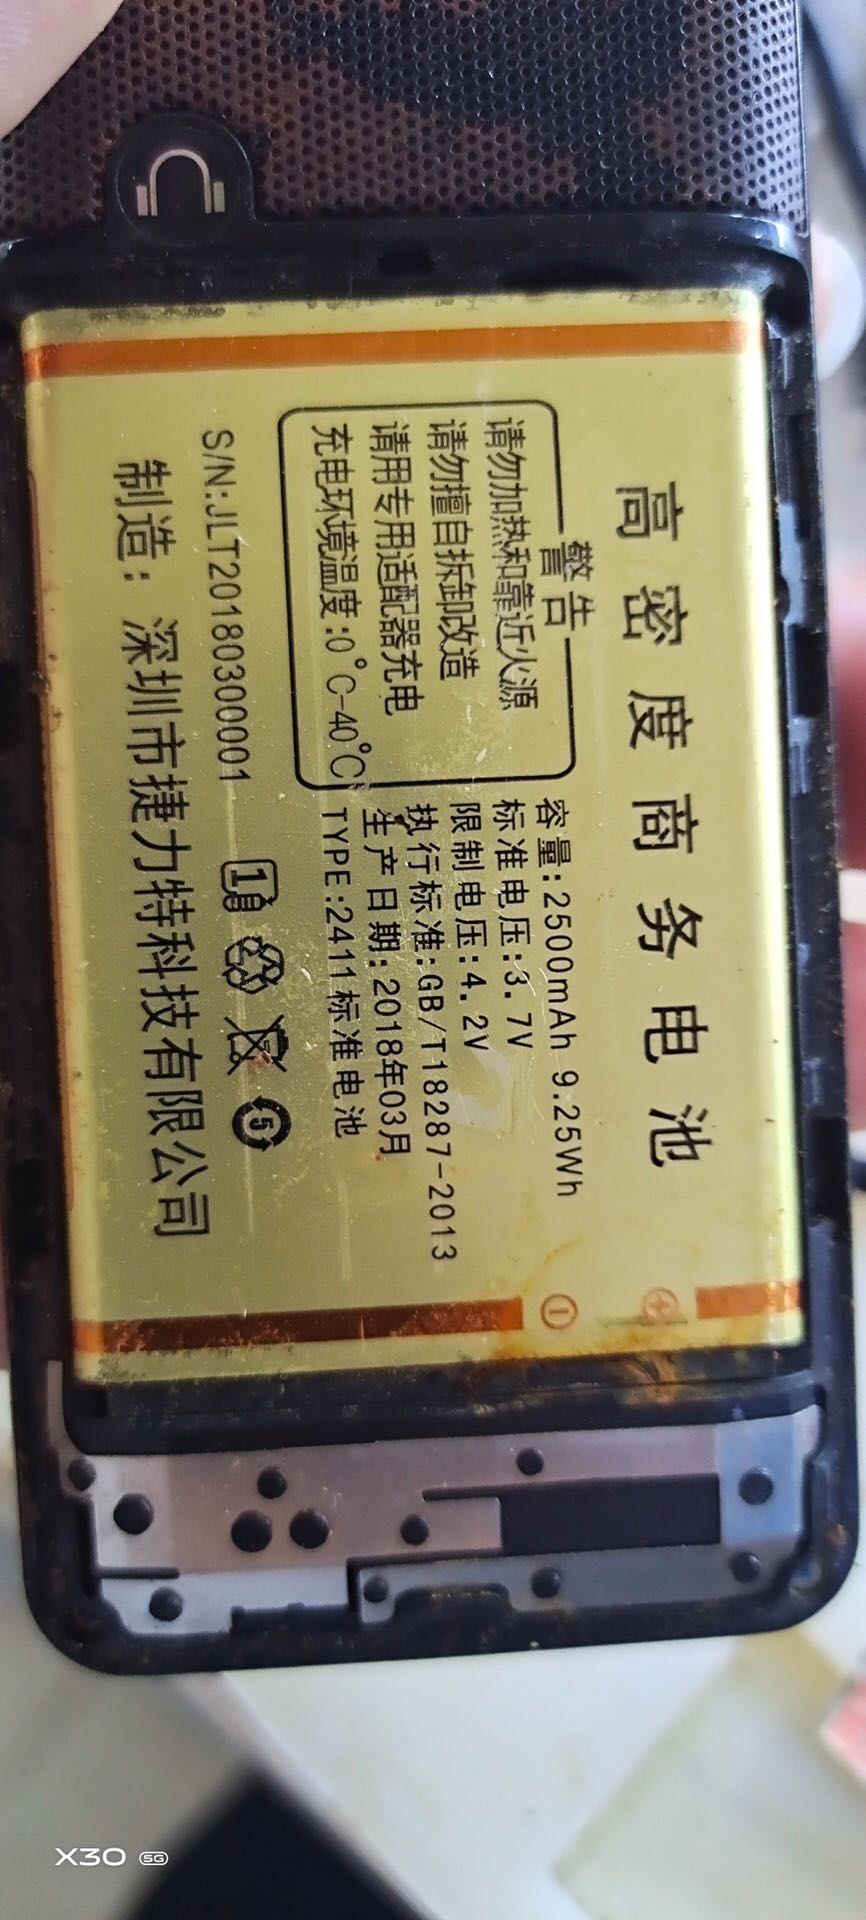 高密度商务电池
警告
请勿加热和靠近火源
请勿擅自拆卸改造
请用专用适配器充电
充电环境温度:0°C-40°C
容量:2500mAh 9.25Wh
标准电压:3.7V
限制电压:4.2V
执行标准:GB/T18287-2013
生产日期:2018年03月
TYPE:2411标准电池
S/N:JLT20180300001
制造：深圳市捷力特科技有限公司
5
X30 5G